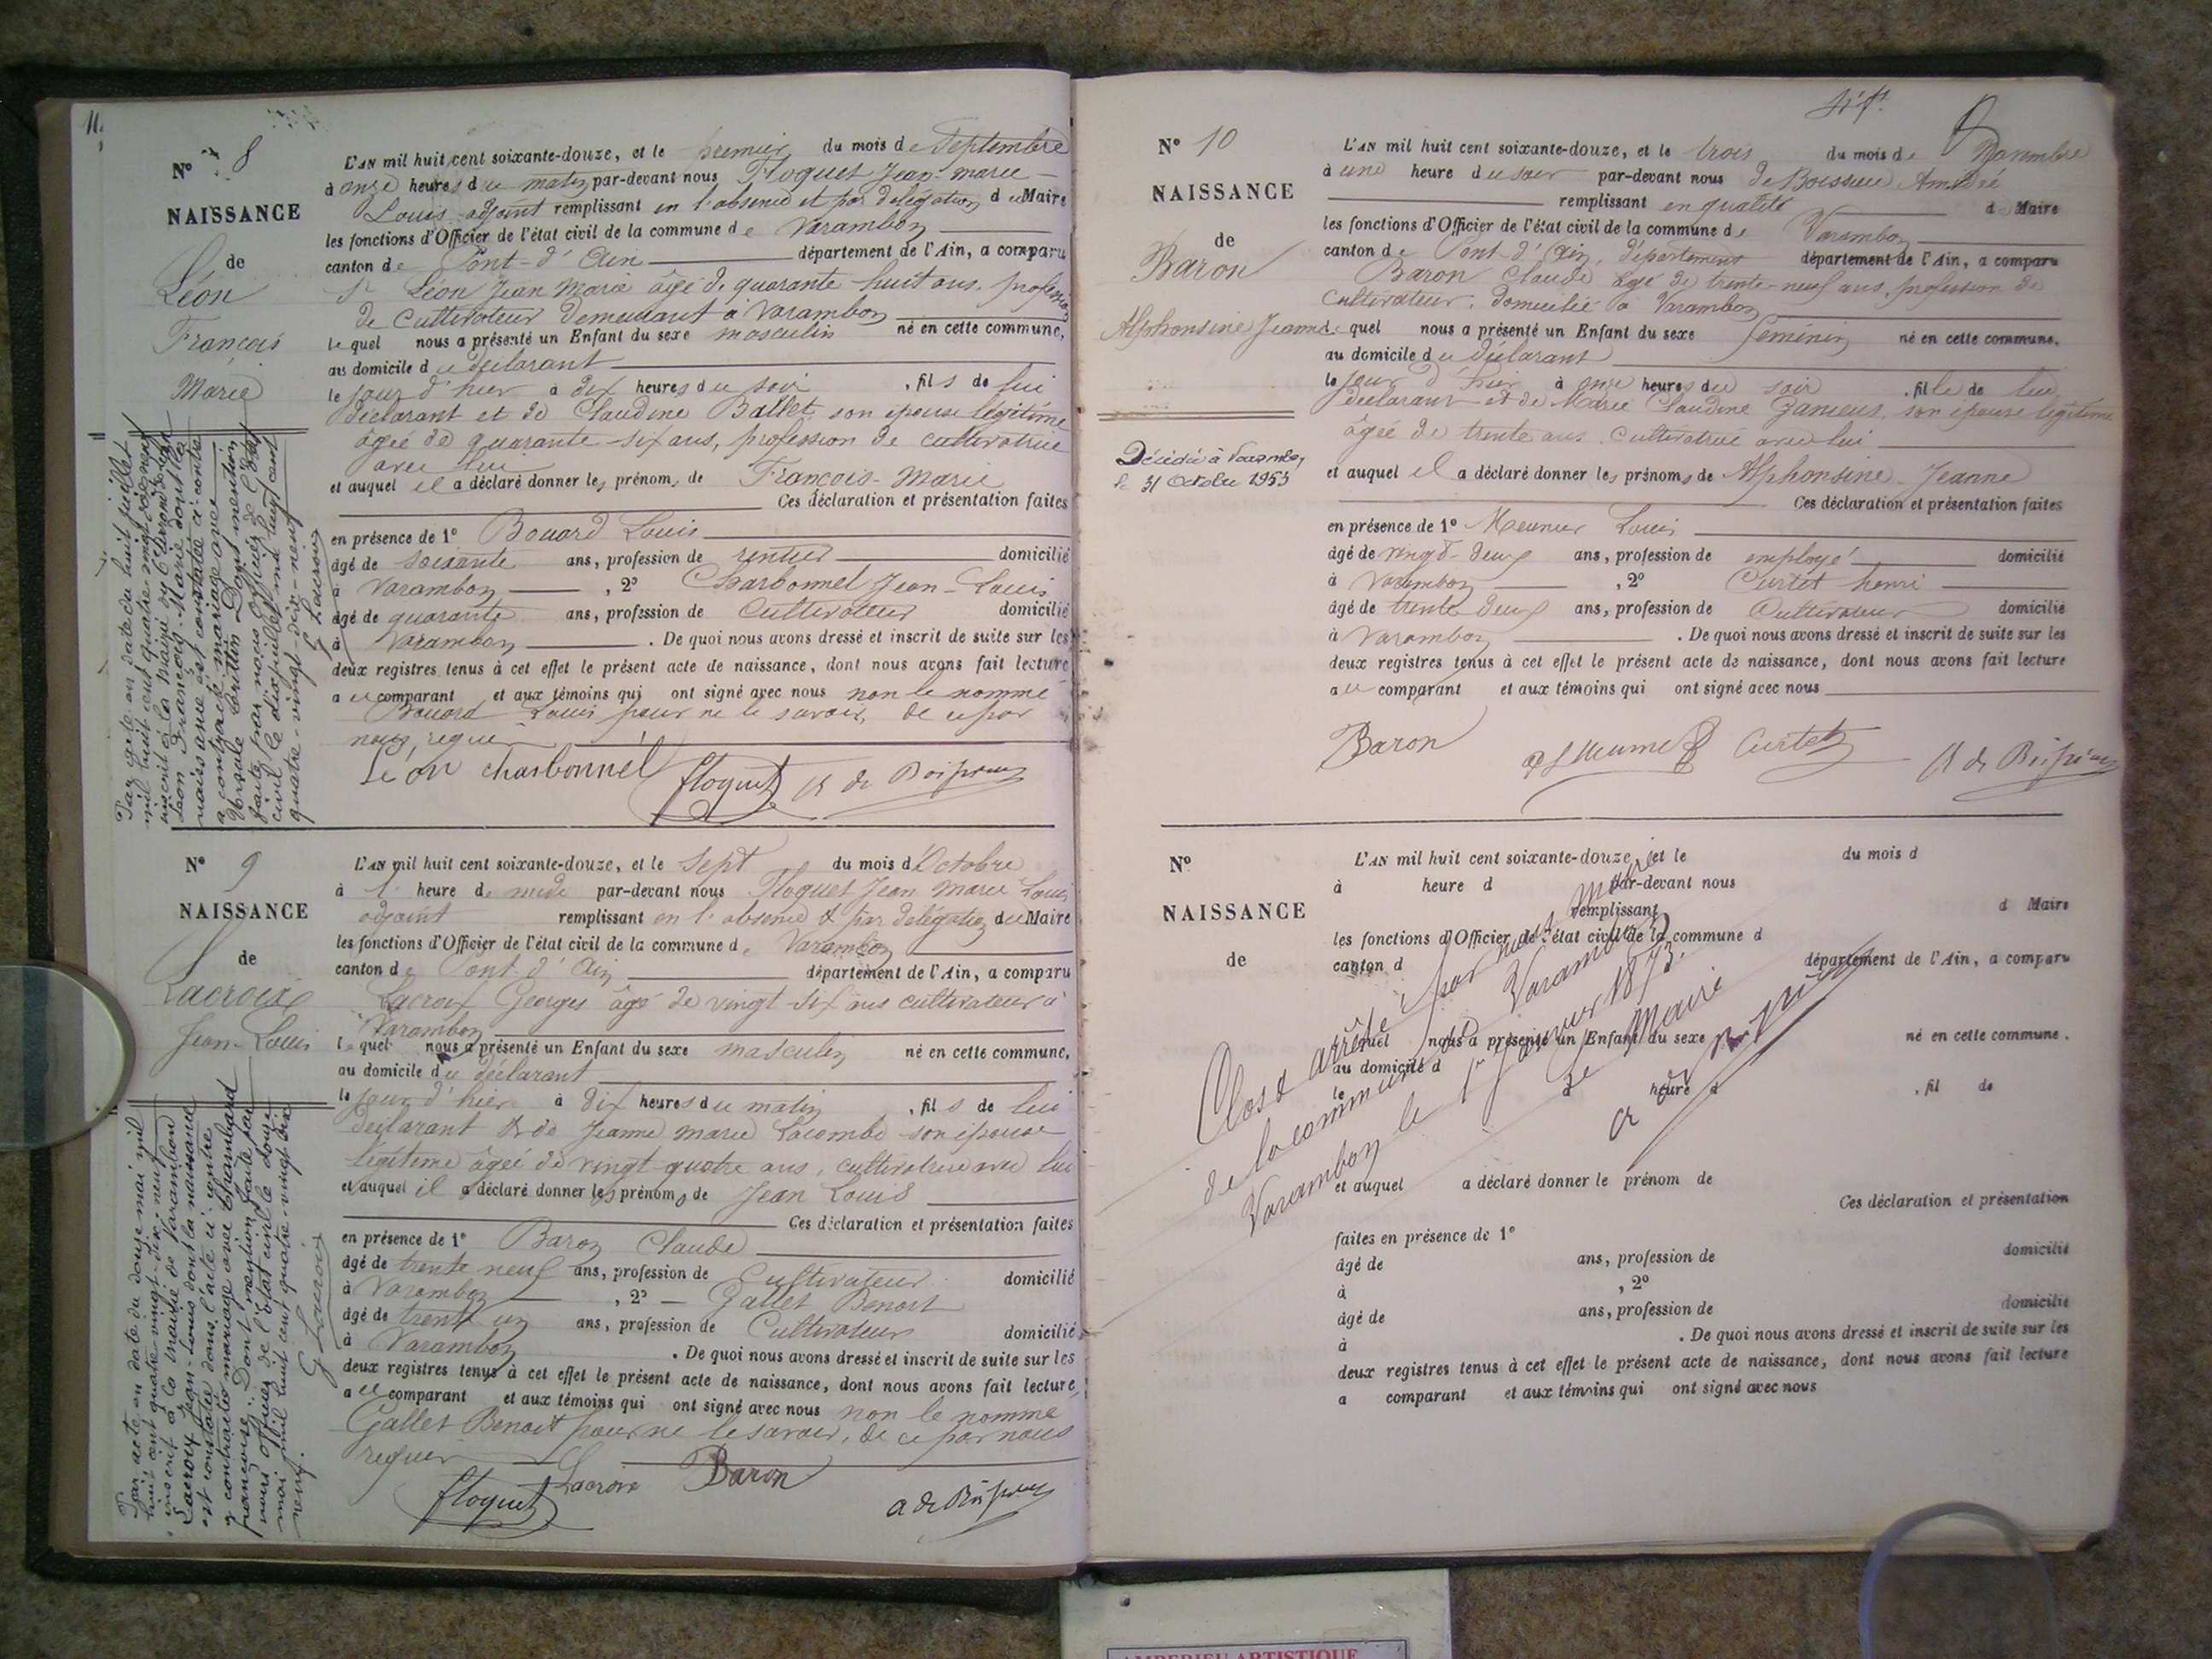 11.
Nº 8
NAISSANCE
de
Léon
François
Marie
L'AN mil huit cent soixante-douze, et le premier du mois de Septembre
à onze heures du matin par-devant nous Floquet Jean-marie
Louis adjoint remplissant en l'absence et par délégation du Maire
les fonctions d'Officier de l'état civil de la commune de Varambon
canton de Pont-d'Ain département de l'Ain, a comparu
Sr Léon Jean Marie âgé de quarante-huit ans, profession
de Cultivateur demeurant à Varambon
lequel nous a présenté un Enfant du sexe masculin né en cette commune,
au domicile du déclarant
le jour d'hier à dix heures du soir, fils de lui
déclarant et de Claudine Ballet son épouse légitime
âgée de quarante-six ans, profession de cultivatrice
avec lui
et auquel il a déclaré donner les prénoms de François-Marie
Ces déclaration et présentation faites
en présence de 1º Bouard Louis
âgé de soixante ans, profession de rentier domicilié
à Varambon, 2º Charbonnel Jean-Louis
âgé de quarante ans, profession de Cultivateur domicilié
à Varambon. De quoi nous avons dressé et inscrit de suite sur les
deux registres tenus à cet effet le présent acte de naissance, dont nous avons fait lecture
au comparant et aux témoins qui ont signé avec nous non le nommé
Bouard Louis pour ne le savoir, de ce par
nous requis
Léon charbonnel Floquet A de Boissieu
Par acte en date du huit juillet
mil huit cent quatre-vingt-dix-neuf
inscrit à la mairie du
Léon François-Marie dont la
naissance est constatée ci-contre
a contracté mariage avec
Dont mention
faite par nous Officier de l'état
civil le dix juillet mil huit cent
quatre-vingt-dix-neuf
G Lacroix
Nº 9
NAISSANCE
de
Lacroix
Jean-Louis
L'AN mil huit cent soixante-douze, et le Sept du mois d'Octobre
à 1 heure de midi par-devant nous Floquet Jean Marie Louis
adjoint remplissant en l'absence & par délégation du Maire
les fonctions d'Officier de l'état civil de la commune de Varambon
canton de Pont-d'Ain département de l'Ain, a comparu
Lacroix Georges âgé de vingt-six ans cultivateur à
Varambon
lequel nous a présenté un Enfant du sexe masculin né en cette commune,
au domicile du déclarant
le jour d'hier à dix heures du matin, fils de lui
déclarant & de Jeanne marie Lacombe son épouse
légitime âgée de vingt-quatre ans, cultivatrice avec lui
et auquel il a déclaré donner les prénoms de Jean Louis
Ces déclaration et présentation faites
en présence de 1º Baron Claude
âgé de trente neuf ans, profession de Cultivateur domicilié
à Varambon, 2º Gallet Benoit
âgé de trente un ans, profession de Cultivateur domicilié
à Varambon. De quoi nous avons dressé et inscrit de suite sur les
deux registres tenus à cet effet le présent acte de naissance, dont nous avons fait lecture
au comparant et aux témoins qui ont signé avec nous non le nommé
Gallet Benoit pour ne le savoir, de ce par nous
requis
Floquet Lacroix Baron A de Boissieu
Par acte en date du douze mai mil
huit cent quatre vingt-dix-neuf
inscrit à la mairie de Varambon
Lacroix Jean-Louis dont la naissance
est constatée dans l'acte ci contre
a contracté mariage avec Chambard
françoise. Dont mention faite par
nous officier de l'état civil le douze
mai mil huit cent quatre-vingt dix
neuf.
G Lacroix
Nº 10
NAISSANCE
de
Baron
Alphonsine Jeanne
Décédée à Varambon
le 31 Octobre 1953
L'AN mil huit cent soixante-douze, et le trois du mois de Novembre
à une heure du soir par-devant nous de Boissieu Amédée
remplissant en qualité d Maire
les fonctions d'Officier de l'état civil de la commune de Varambon
canton de Pont-d'Ain, département département de l'Ain, a comparu
Baron Claude âgé de trente-neuf ans, profession de
Cultivateur, domicilié à Varambon
lequel nous a présenté un Enfant du sexe féminin né en cette commune.
au domicile du déclarant
le jour d'hier à onze heures du soir, fille de lui
déclarant et de Marie Claudine son épouse légitime
âgée de trente ans, cultivatrice avec lui
et auquel il a déclaré donner les prénoms de Alphonsine-Jeanne
Ces déclaration et présentation faites
en présence de 1º Meunier Louis
âgé de vingt-deux ans, profession de employé domicilié
à Varambon, 2º Curtet henri
âgé de trente deux ans, profession de Cultivateur domicilié
à Varambon. De quoi nous avons dressé et inscrit de suite sur les
deux registres tenus à cet effet le présent acte de naissance, dont nous avons fait lecture
au comparant et aux témoins qui ont signé avec nous
Baron Meunier Curtet A de Boissieu
Nº
NAISSANCE
de
L'AN mil huit cent soixante-douze, et le du mois d
à heure d par-devant nous
remplissant d Maire
les fonctions d'Officier de l'état civil de la commune d
canton d département de l'Ain, a comparu
quel nous a présenté un Enfant du sexe né en cette commune.
au domicile d
le à heure d, fil de
et auquel a déclaré donner le prénom de
Ces déclaration et présentation
faites en présence de 1º
âgé de ans, profession de domicilié
à, 2º
âgé de ans, profession de domicilié
à. De quoi nous avons dressé et inscrit de suite sur les
deux registres tenus à cet effet le présent acte de naissance, dont nous avons fait lecture
a comparant et aux témoins qui ont signé avec nous
Clos & arrêté par nous Maire
de la commune de Varambon
Varambon le 1er Janvier 1873.
Le Maire
A de Boissieu
AMBERIEU ARTISTIQUE